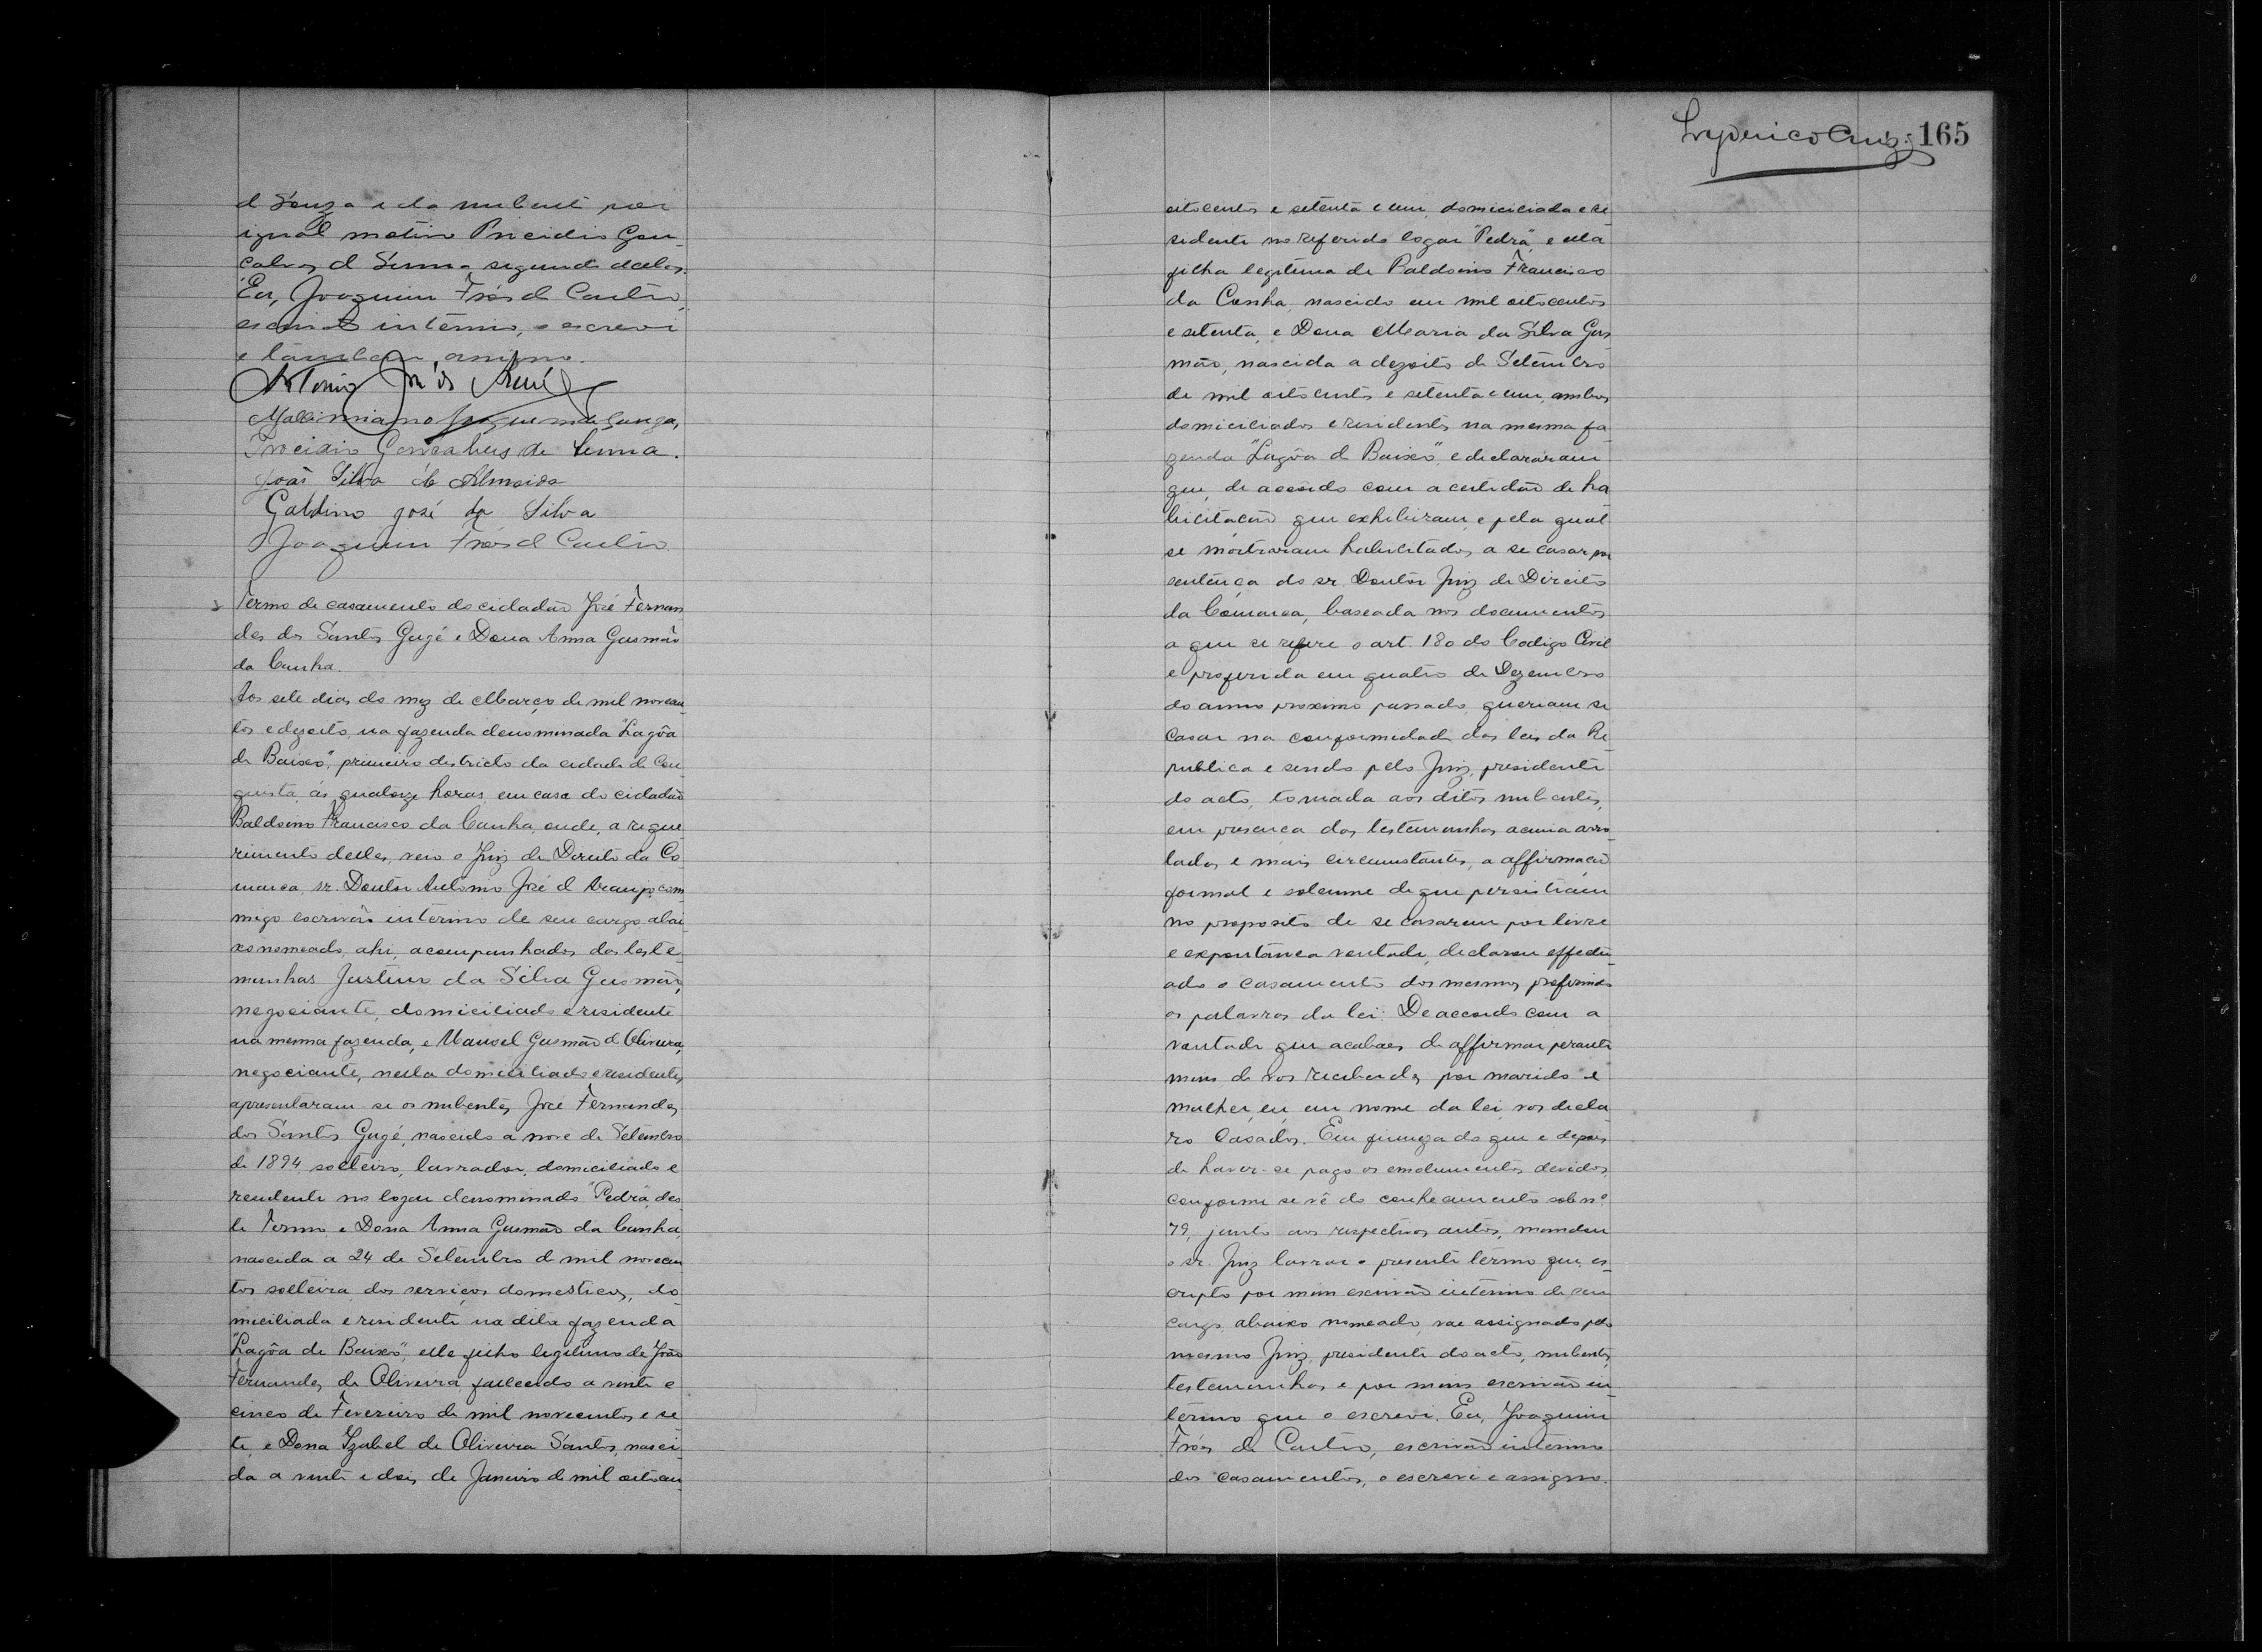 d Souza e da nubente por
igual motivo Procidio Gon-
calves d Senna segundo declos.
Eu, Joaquim Fróes d Castro,
escrivão interino, o escrevi
e tambem assigno.
Antonio José de Araujo
Maximiano
Procidio Goncalves de Senna.
João Silva de Almeida
Galdino José da Silva
Joaquim Fróes d Castro.
Termo de casamento do cidadão José Fernan
des dos Santos Gugé e Dona Anna Gusmão
da Cunha.
Aos sete dias do mez de Março de mil novecen-
tos e dezoito, na fazenda denominada "Lagôa
de Baixo", primeiro districto da cidade de Con-
quista, ás quatorze horas, em casa do cidadão
Baldoino Francisco da Cunha, onde, a reque
rimento delles, veio o Juiz de Direito da Co
marca, sr. Doutor Antonio José d Araujo, com
migo escrivão interino de seu cargo abai-
xo nomeado, ahi, acompanhados das teste-
munhas Justino da Silva Gusmão,
negociante, domiciliado e residente
na mesma fazenda, e Manoel Gusmão d Oliveira,
negociante, nella domiciliado e residente,
apresentaram-se os nubentes José Fernandes
dos Santos Gugé, nascido a nove de Setembro
de 1894, solteiro, lavrador, domiciliado e
residente no logar denominado "Pedra", des
te Termo e Dona Anna Gusmão da Cunha,
nascida a 24 de Setembro de mil novecen
tos solteira dos serviços domesticos, do-
miciliada e residente na dita fazenda
"Lagôa de Baixo", elle filho legitimo de João
Fernandes de Oliveira, fallecido a vinte e
cinco de Fevereiro de mil novecentos e se
te, e Dona Izabel de Oliveira Santos, nasci
da a vinte e dois de Janeiro de mil oitocen-
165
oitocentos e setenta e um, domiciliada e re
sidente no referido logar "Pedra", e ella
filha legitima de Baldoino Francisco
da Cunha, nascido em mil oitocentos
e setenta, e Dona Maria da Silva Gus
mão, nascida a dezoito de Setembro
de mil oitocentos e setenta e um, ambos
domiciliados e residentes na mesma fa-
zenda "Lagôa d Baixo", e declararam
que, de accordo com a certidão de ha
bilitação que exhibiram, e pela qual
se mostraram habilitados a se casar por
sentença do sr. Doutor Juiz de Direito
da Comarca, baseada nos documentos
a que se refere o art. 180 do Codigo Civil
e proferida em quatro de Dezembro
do anno proximo passado, queriam se
casar na conformidade das leis da Re-
publica e sendo pelo Juiz, presidente
do acto, tomada aos ditos nubentes,
em presença das testemunhas acima arro
ladas e mais circumstantes, a affirmação
formal e solemne de que persistiam
no proposito de se casarem por livre
e expontanea vontade, declarou effectu-
ado o casamento dos mesmos, proferindo
as palavras da lei: De accordo com a
vontade que acabaes de affirmar perante
mim, de vos receberdes por marido e
mulher, eu, em nome da lei, vos decla
ro casados. Em firmeza do que e depois
de haver-se pago os emolumentos devidos,
conforme se vê do conhecimento sob nº
79, junto aos respectivos autos, mandou
o sr. Juiz lavrar o presente termo que, es-
cripto por mim escrivão interino de seu
cargo, abaixo nomeado, vae assignado pelo
mesmo Juiz, presidente do acto, nubentes,
testemunhas e por mim escrivão in-
terino que o escrevi. Eu, Joaquim
Fróes de Castro, escrivão interino
dos casamentos, o escrevi e assigno.